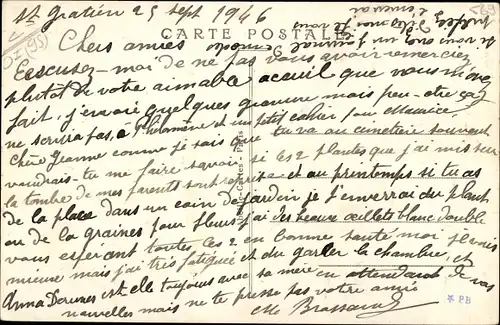 St Gratien 25 sept 1946
CARTE POSTALE
Chers amies
Excusez-moi de ne pas vous avoir remerciez
plutot de votre aimable acceuil que vous m'avez
fait, j'envoie quelques graine mais peu-etre ça
ne servira pas, a Philomène et un petit cahier pour Maurice,
Chère Jeanne comme je sais que tu va au cimetiere souvent
voudrais-tu me faire savoir si les 2 plantes que j'ai mis sur
la tombe de mes parents sont reprise et au printemps si tu as
de la place dans un coin de jardin je t'enverrai du plant
ou de la graines pour fleurs j'ai des beaux œillets blanc double
vous esperant toutes les 2 en bonne santé moi je vais
mieux mais j'ai très fatiguée et du garder la chambre, et
Anna est elle toujours avec sa mère en attendant de vos
nouvelles mais ne te presse pas votre amis
Mme Brassard
PB